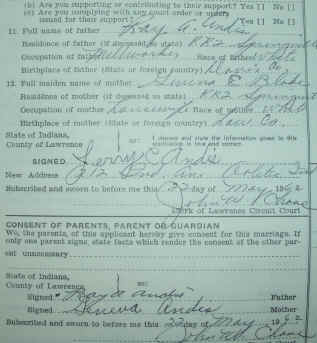 (b) Are you supporting or contributing to their support? Yes [ ] No [ ]
(c) Are you complying with any court order or orders
issued for their support? Yes [ ] No [ ]
11. Full name of father Ray A. Andis
Residence of father (if deceased so state) RR2 Springville
Occupation of father Millworker Race of father White
Birthplace of father (State or foreign country) Co.
12. Full maiden name of mother E. Blake
Residence of mother (if deceased so state) RR2 Springville
Occupation of mother Housewife Race of mother White
Birthplace of mother (State or foreign country) Law. Co.
State of Indiana,
County of Lawrence
ss:
I depose and state the information given in this
application is true and correct.
SIGNED Andis
New Address 212 2nd. Ave Oolitic Ind
Subscribed and sworn to before me this 22 day of May 1962
John W. Chase
Clerk of Lawrence Circuit Court
CONSENT OF PARENTS, PARENT OR GUARDIAN
We, the parents, of this applicant hereby give consent for this marriage. If
only one parent signs, state facts which render the consent of the other par-
ent unnecessary
State of Indiana,
County of Lawrence,
ss:
Signed Ray A Andis Father
Signed Geneva Andis Mother
Subscribed and sworn to before me this 22 day of May 1962
John W. Chase